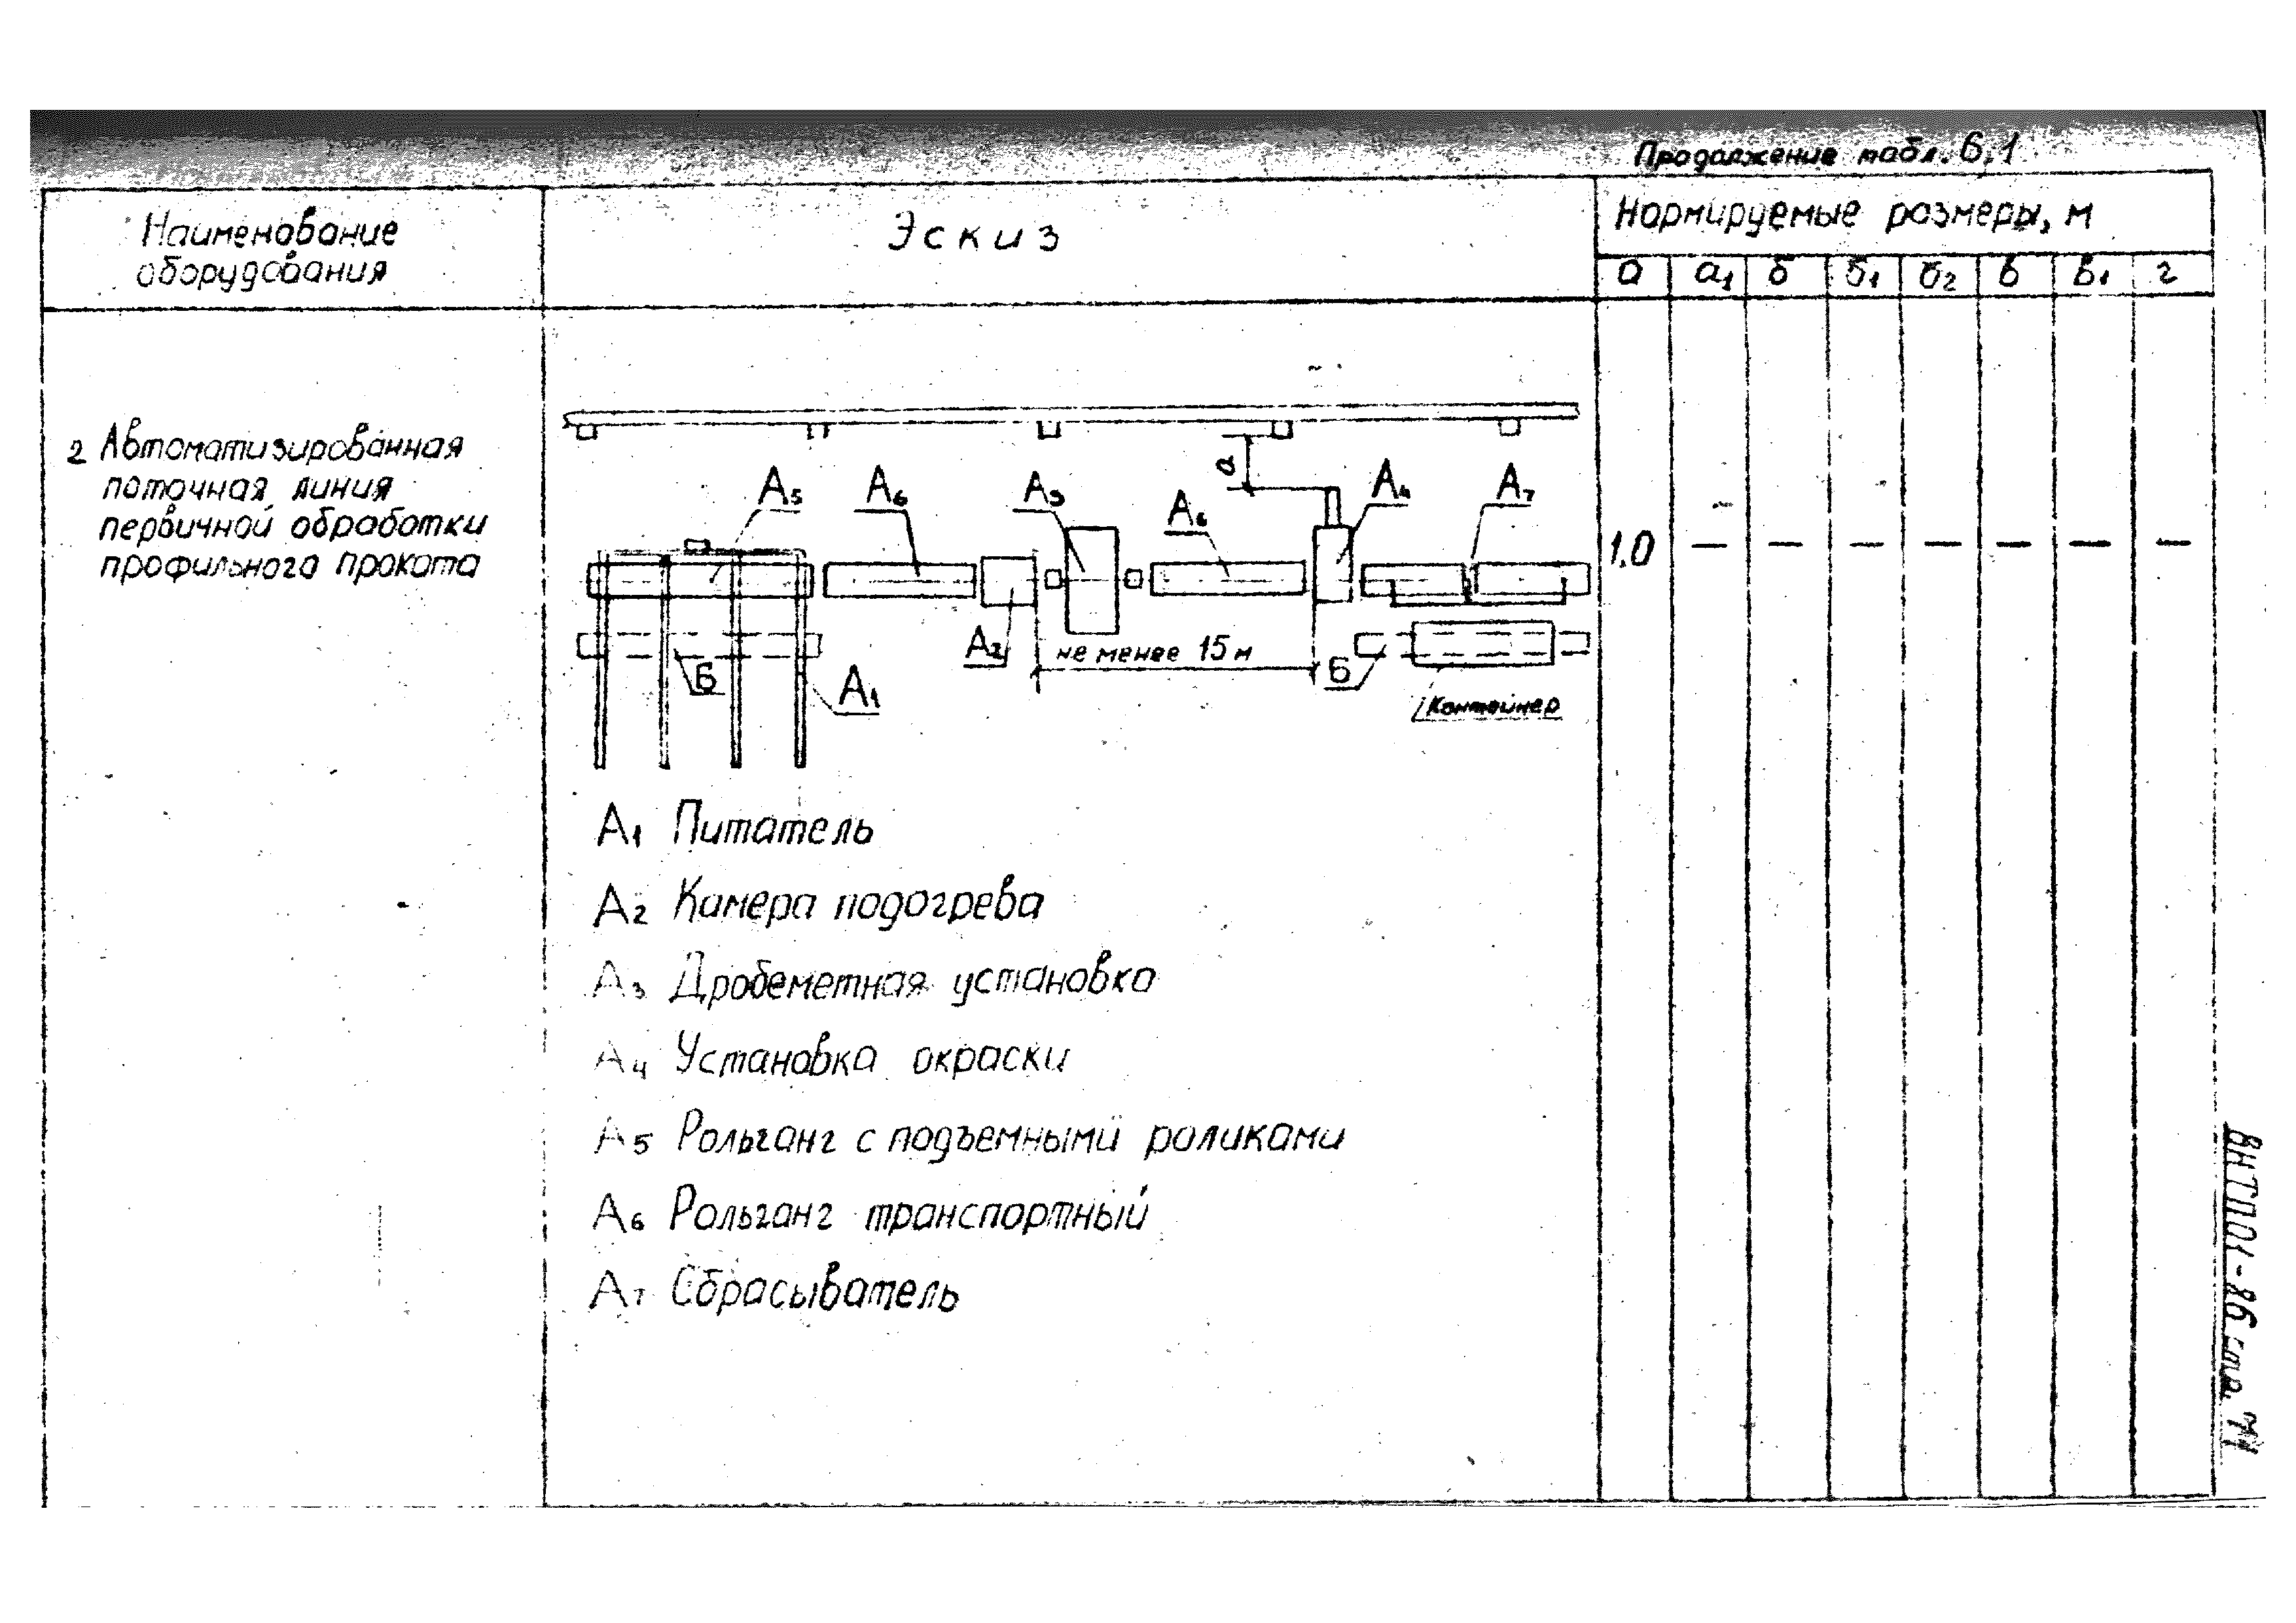 Продолжение табл. 6,1
Наименование
оборудования
Эскиз
Нормируемые размеры, м
а а1 б б1 б2 в в1 г
2 Автоматизированная
поточная линия
первичной обработки
профильного проката
а
А5 А6 А3 А6 А4 А7
1,0 — — — — — — —
А2 не менее 15 м Б
Б А1
Контейнер
А1 Питатель
А2 Камера подогрева
А3 Дробеметная установка
А4 Установка окраски
А5 Рольганг с подъемными роликами
А6 Рольганг транспортный
А7 Сбрасыватель
ВНТП01-86 стр.